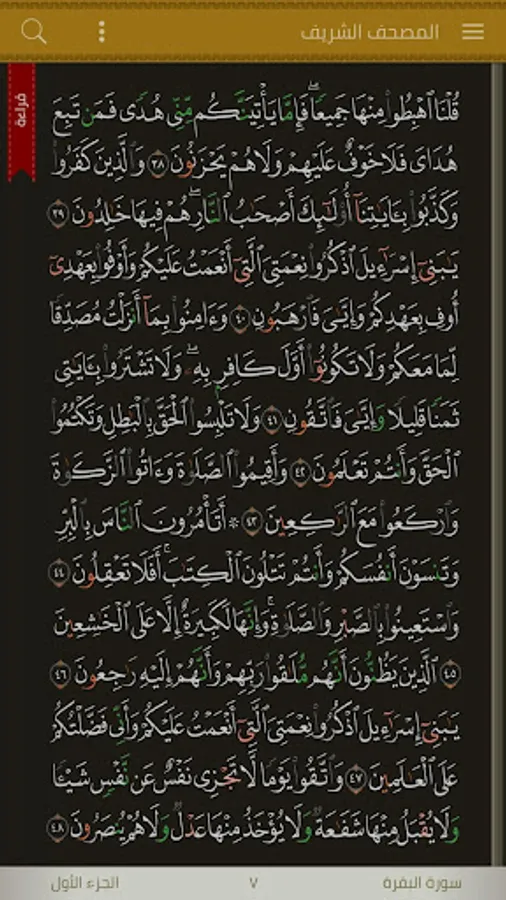 المصحف الشريف
قراءة
قُلْنَا ٱهْبِطُوا۟ مِنْهَا جَمِيعًۭا ۖ فَإِمَّا يَأْتِيَنَّكُم مِّنِّى هُدًۭى فَمَن تَبِعَ
هُدَاىَ فَلَا خَوْفٌ عَلَيْهِمْ وَلَا هُمْ يَحْزَنُونَ ٣٨ وَٱلَّذِينَ كَفَرُوا۟
وَكَذَّبُوا۟ بِـَٔايَـٰتِنَآ أُو۟لَـٰٓئِكَ أَصْحَـٰبُ ٱلنَّارِ ۖ هُمْ فِيهَا خَـٰلِدُونَ ٣٩
يَـٰبَنِىٓ إِسْرَٰٓءِيلَ ٱذْكُرُوا۟ نِعْمَتِىَ ٱلَّتِىٓ أَنْعَمْتُ عَلَيْكُمْ وَأَوْفُوا۟ بِعَهْدِىٓ
أُوفِ بِعَهْدِكُمْ وَإِيَّـٰىَ فَٱرْهَبُونِ ٤٠ وَءَامِنُوا۟ بِمَآ أَنزَلْتُ مُصَدِّقًۭا
لِّمَا مَعَكُمْ وَلَا تَكُونُوٓا۟ أَوَّلَ كَافِرٍۭ بِهِۦ ۖ وَلَا تَشْتَرُوا۟ بِـَٔايَـٰتِى
ثَمَنًۭا قَلِيلًۭا وَإِيَّـٰىَ فَٱتَّقُونِ ٤١ وَلَا تَلْبِسُوا۟ ٱلْحَقَّ بِٱلْبَـٰطِلِ وَتَكْتُمُوا۟
ٱلْحَقَّ وَأَنتُمْ تَعْلَمُونَ ٤٢ وَأَقِيمُوا۟ ٱلصَّلَوٰةَ وَءَاتُوا۟ ٱلزَّكَوٰةَ
وَٱرْكَعُوا۟ مَعَ ٱلرَّٰكِعِينَ ٤٣ ۞ أَتَأْمُرُونَ ٱلنَّاسَ بِٱلْبِرِّ
وَتَنسَوْنَ أَنفُسَكُمْ وَأَنتُمْ تَتْلُونَ ٱلْكِتَـٰبَ ۚ أَفَلَا تَعْقِلُونَ ٤٤
وَٱسْتَعِينُوا۟ بِٱلصَّبْرِ وَٱلصَّلَوٰةِ ۚ وَإِنَّهَا لَكَبِيرَةٌ إِلَّا عَلَى ٱلْخَـٰشِعِينَ
٤٥ ٱلَّذِينَ يَظُنُّونَ أَنَّهُم مُّلَـٰقُوا۟ رَبِّهِمْ وَأَنَّهُمْ إِلَيْهِ رَٰجِعُونَ ٤٦
يَـٰبَنِىٓ إِسْرَٰٓءِيلَ ٱذْكُرُوا۟ نِعْمَتِىَ ٱلَّتِىٓ أَنْعَمْتُ عَلَيْكُمْ وَأَنِّى فَضَّلْتُكُمْ
عَلَى ٱلْعَـٰلَمِينَ ٤٧ وَٱتَّقُوا۟ يَوْمًۭا لَّا تَجْزِى نَفْسٌ عَن نَّفْسٍۢ شَيْـًۭٔا
وَلَا يُقْبَلُ مِنْهَا شَفَـٰعَةٌۭ وَلَا يُؤْخَذُ مِنْهَا عَدْلٌۭ وَلَا هُمْ يُنصَرُونَ ٤٨
سورة البقرة
٧
الجزء الأول